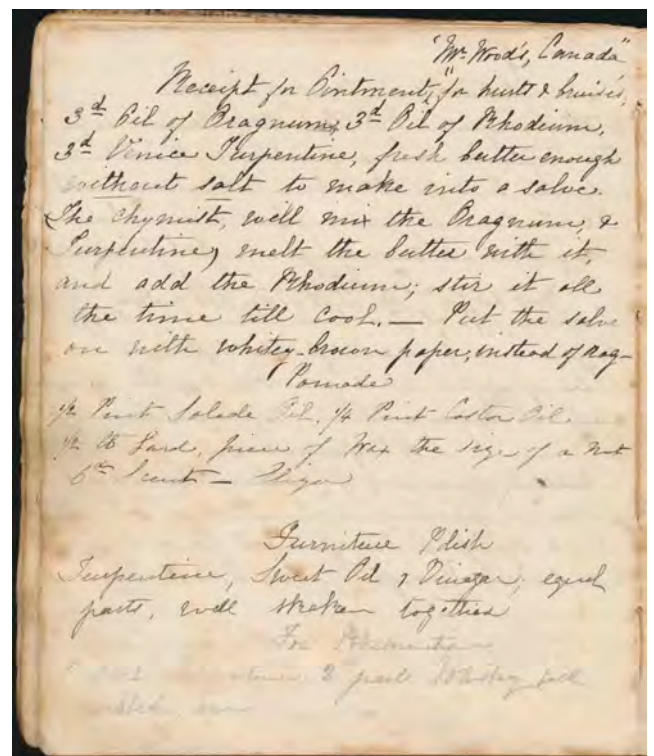 "Mr. Wood's, Canada"
Receipt for Ointment, "for hurts & bruises,
3d Oil of Oragnum, 3d Oil of Rhodium,
3d Venice Turpentine, fresh butter enough
without salt to make into a salve.
The chymist, will mix the Oragnum, &
Turpentine, melt the butter with it,
and add the Rhodium; stir it all
the time till cool. — Put the salve
on with whitey-brown paper, instead of rag—
Pomade
1/2 Pint Salade Oil, 1/4 Pint Castor Oil
1/2 lb Lard, piece of Wax the size of a Nut
6d Scent —
Furniture Polish
Turpentine, Sweet Oil & Vinegar, equal
parts, well shaken together
For
2 parts Whiskey